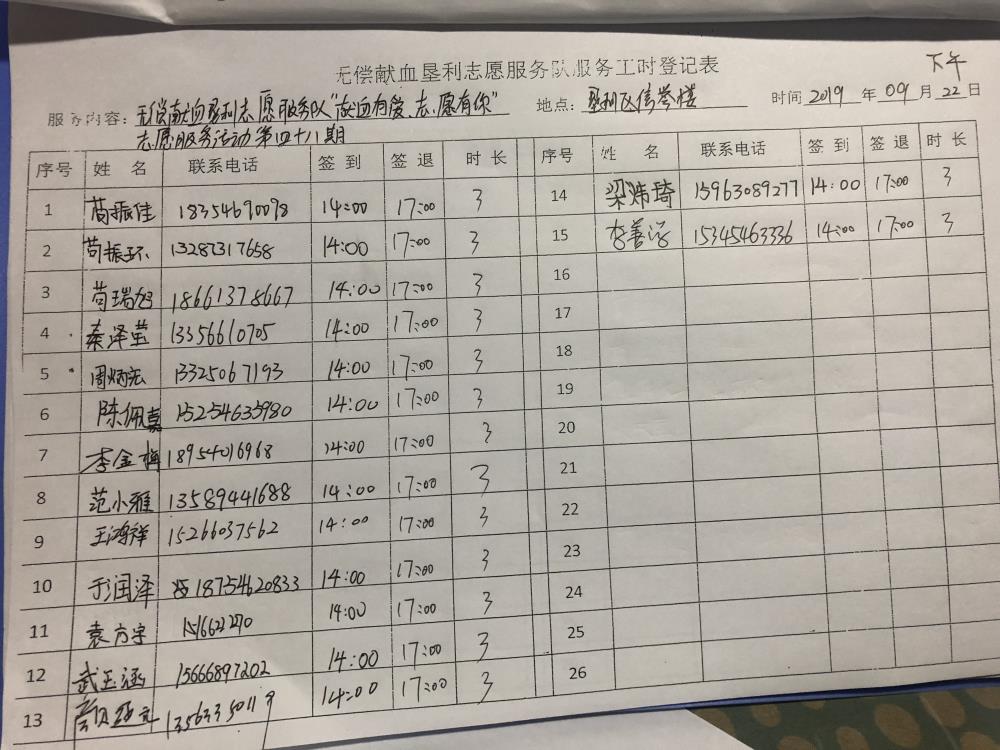 下午
无偿献血垦利志愿服务队服务工时登记表
服务内容：无偿献血垦利志愿服务队“献血有爱、志愿有你” 地点：垦利区信誉楼 时间 2019 年 09 月 22 日
志愿服务活动第四十八期
序号 姓 名 联系电话 签 到 签 退 时 长 序号 姓 名 联系电话 签 到 签 退 时 长
1 苟振佳 18354690098 14:00 17:00 3 14 梁炜琦 15963089277 14:00 17:00 3
2 苟振环 13287317658 14:00 17:00 3 15 李善 15345463336 14:00 17:00 3
3 苟瑞旭 18661378667 14:00 17:00 3 16
4 秦泽莹 13356610705 14:00 17:00 3 17
5 周炳宏 13325067193 14:00 17:00 3 18
6 陈佩嘉 15254635980 14:00 17:00 3 19
7 李金梅 18954016968 14:00 17:00 3 20
8 范小雅 13589441688 14:00 17:00 3 21
9 王鸿祥 15266037562 14:00 17:00 3 22
10 于润泽 18754620833 14:00 17:00 3 23
11 袁方宇 14:00 17:00 3 24
12 武玉涵 15666897202 14:00 17:00 3 25
13 13563350119 14:00 17:00 3 26